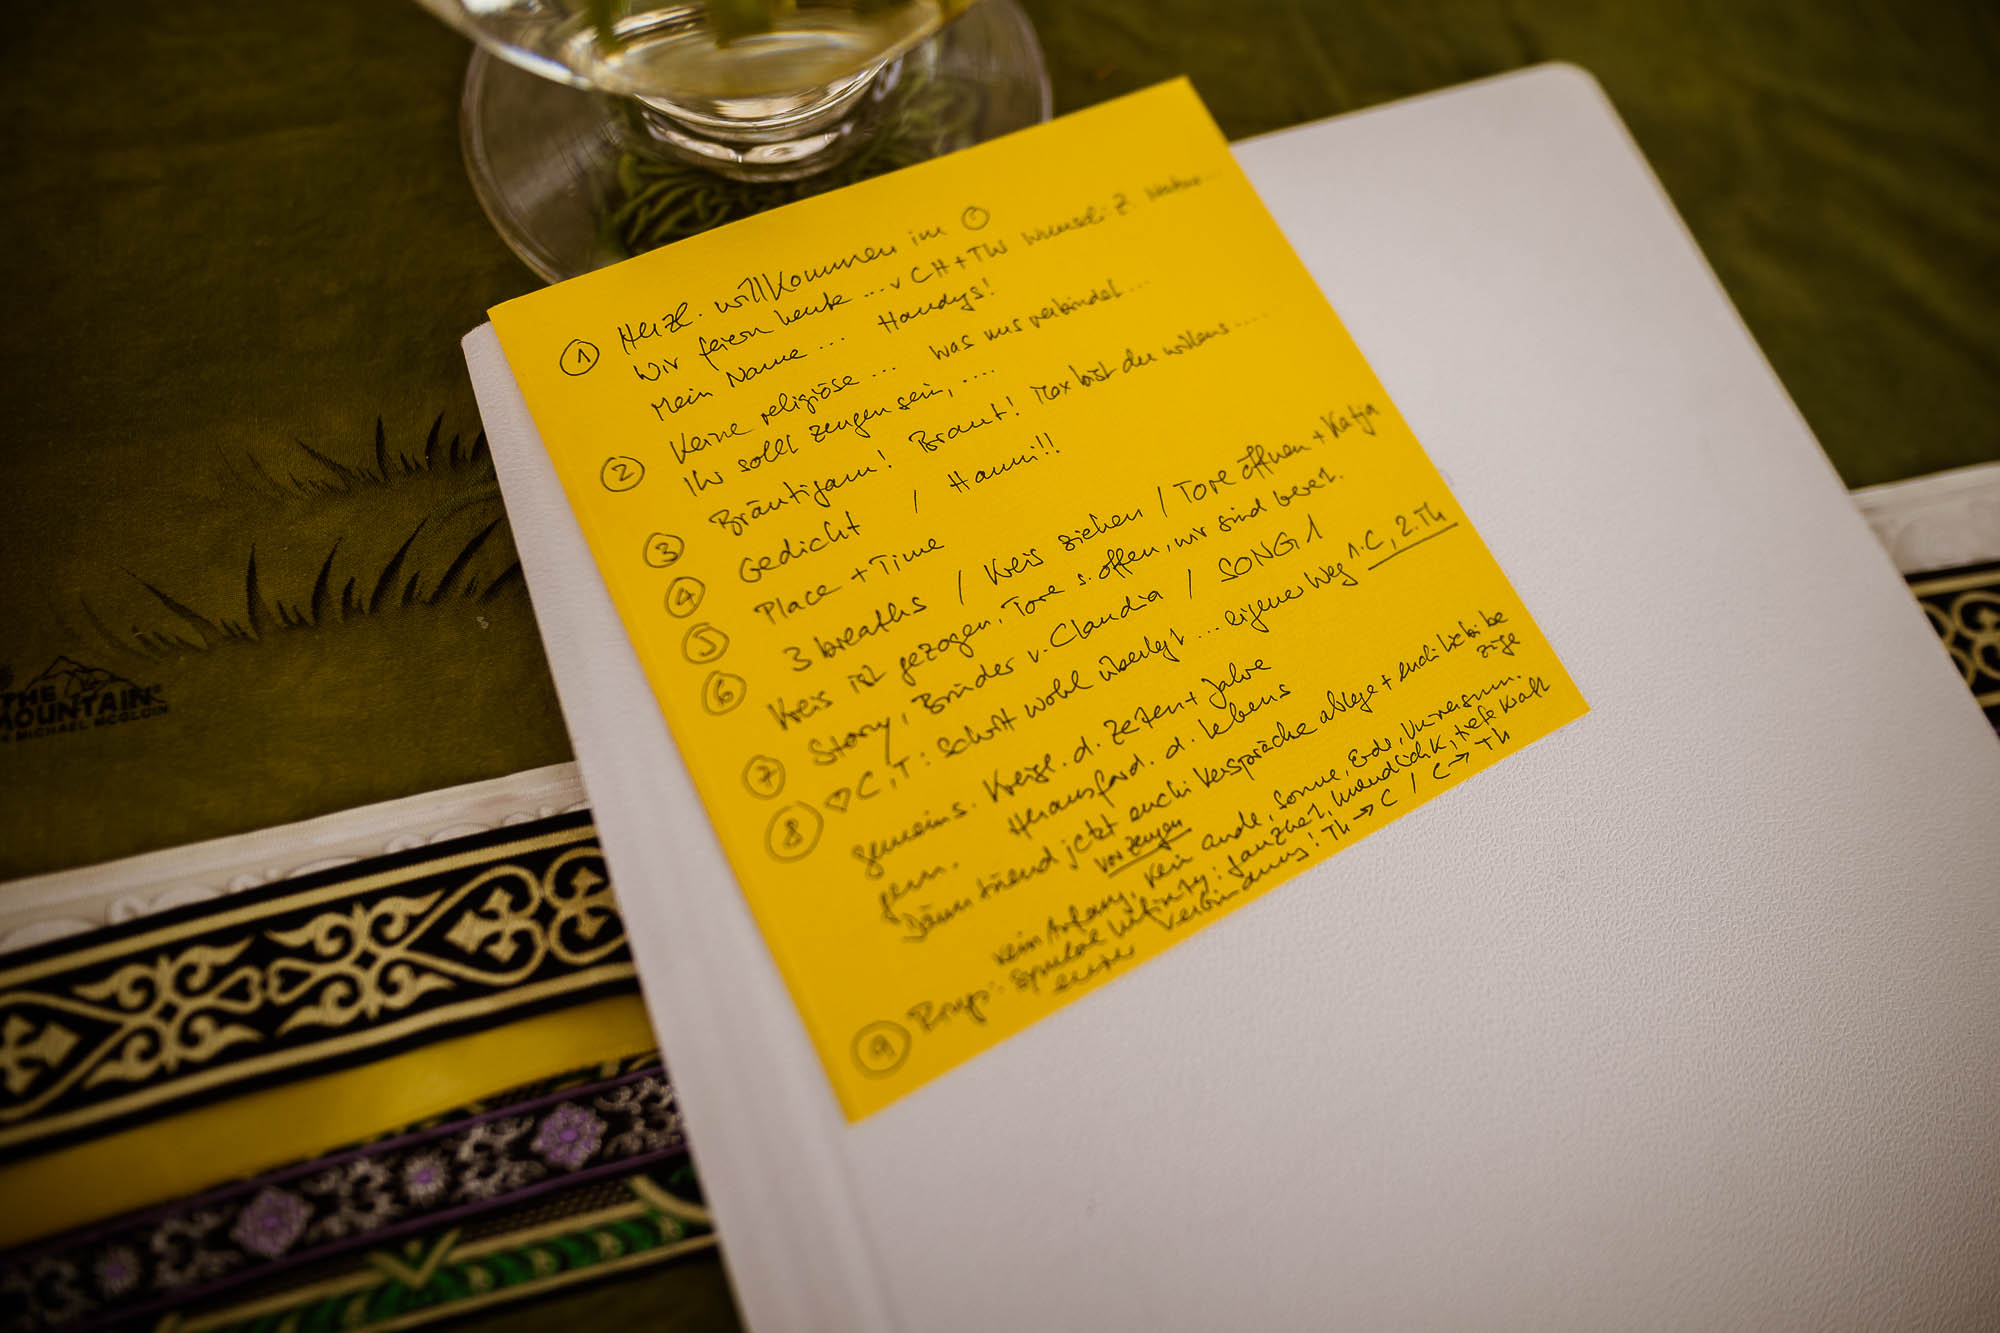 ① Herzl. willkommen im O
Wir feiern heute ... v CH + TW Wunsch z.
Mein Name ... Handys!
② Keine religiöse ... was uns verbindet ...
Ihr sollt Zeugen sein, ....
③ Bräutigam! Braut! Max bist du willens ....
④ Gedicht / Hanni!!
⑤ Place + Time
⑥ 3 breaths / Kreis ziehen / Tore öffnen + Katja
Kreis ist gezogen, Tore s. offen, wir sind bereit.
⑦ Story, Brüder v. Claudia / SONG 1
⑧ ♡ C, T: Schritt wohl überlegt ... eigener Weg 1. C, 2. Th
gemeins. d. Zeiten + Jahre
gem. Herausford. d. Lebens
Dann jetzt euch Versprüche ablege +
vor Zeugen
kein Anfang, kein Ende, Sonne, Erde, Universum.
⑨ Ringe: Symbol Infinity: Ganzheit, Unendlichk, tiefe Kraft
Verbindung! Th → C / C → Th
THE
MOUNTAIN
MICHAEL MCGLOIN